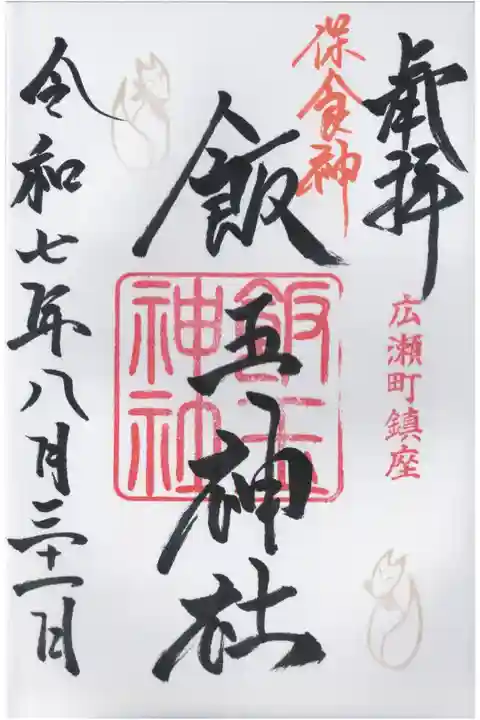 奉拝
広瀬町鎮座
保食神
飯玉神社
飯玉神社
令和七年八月三十一日